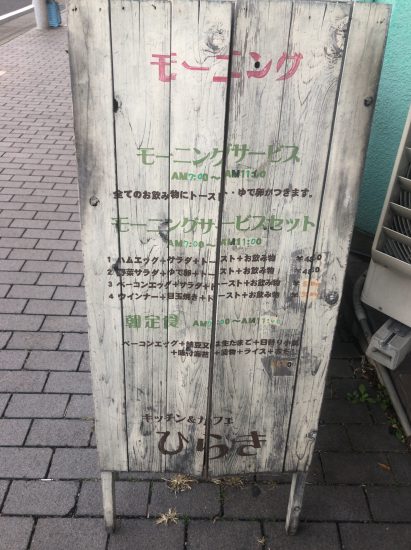 モーニング
モーニングサービス
AM7:00～AM11:00
全てのお飲み物にトースト・ゆで卵がつきます。
モーニングサービスセット
AM7:00～AM11:00
1 ハムエッグ+サラダ+トースト+お飲み物
2 野菜サラダ+ゆで卵+トースト+お飲み物
3 ベーコンエッグ+サラダ+トースト+お飲み物
4 ウインナー+目玉焼き+トースト+お飲み物
朝定食 AM7:00～AM11:00
ベーコンエッグ+納豆又は生たまご+日替り小鉢
+味付海苔+漬物+ライス+みそ汁
キッチン&カフェ
ひらき